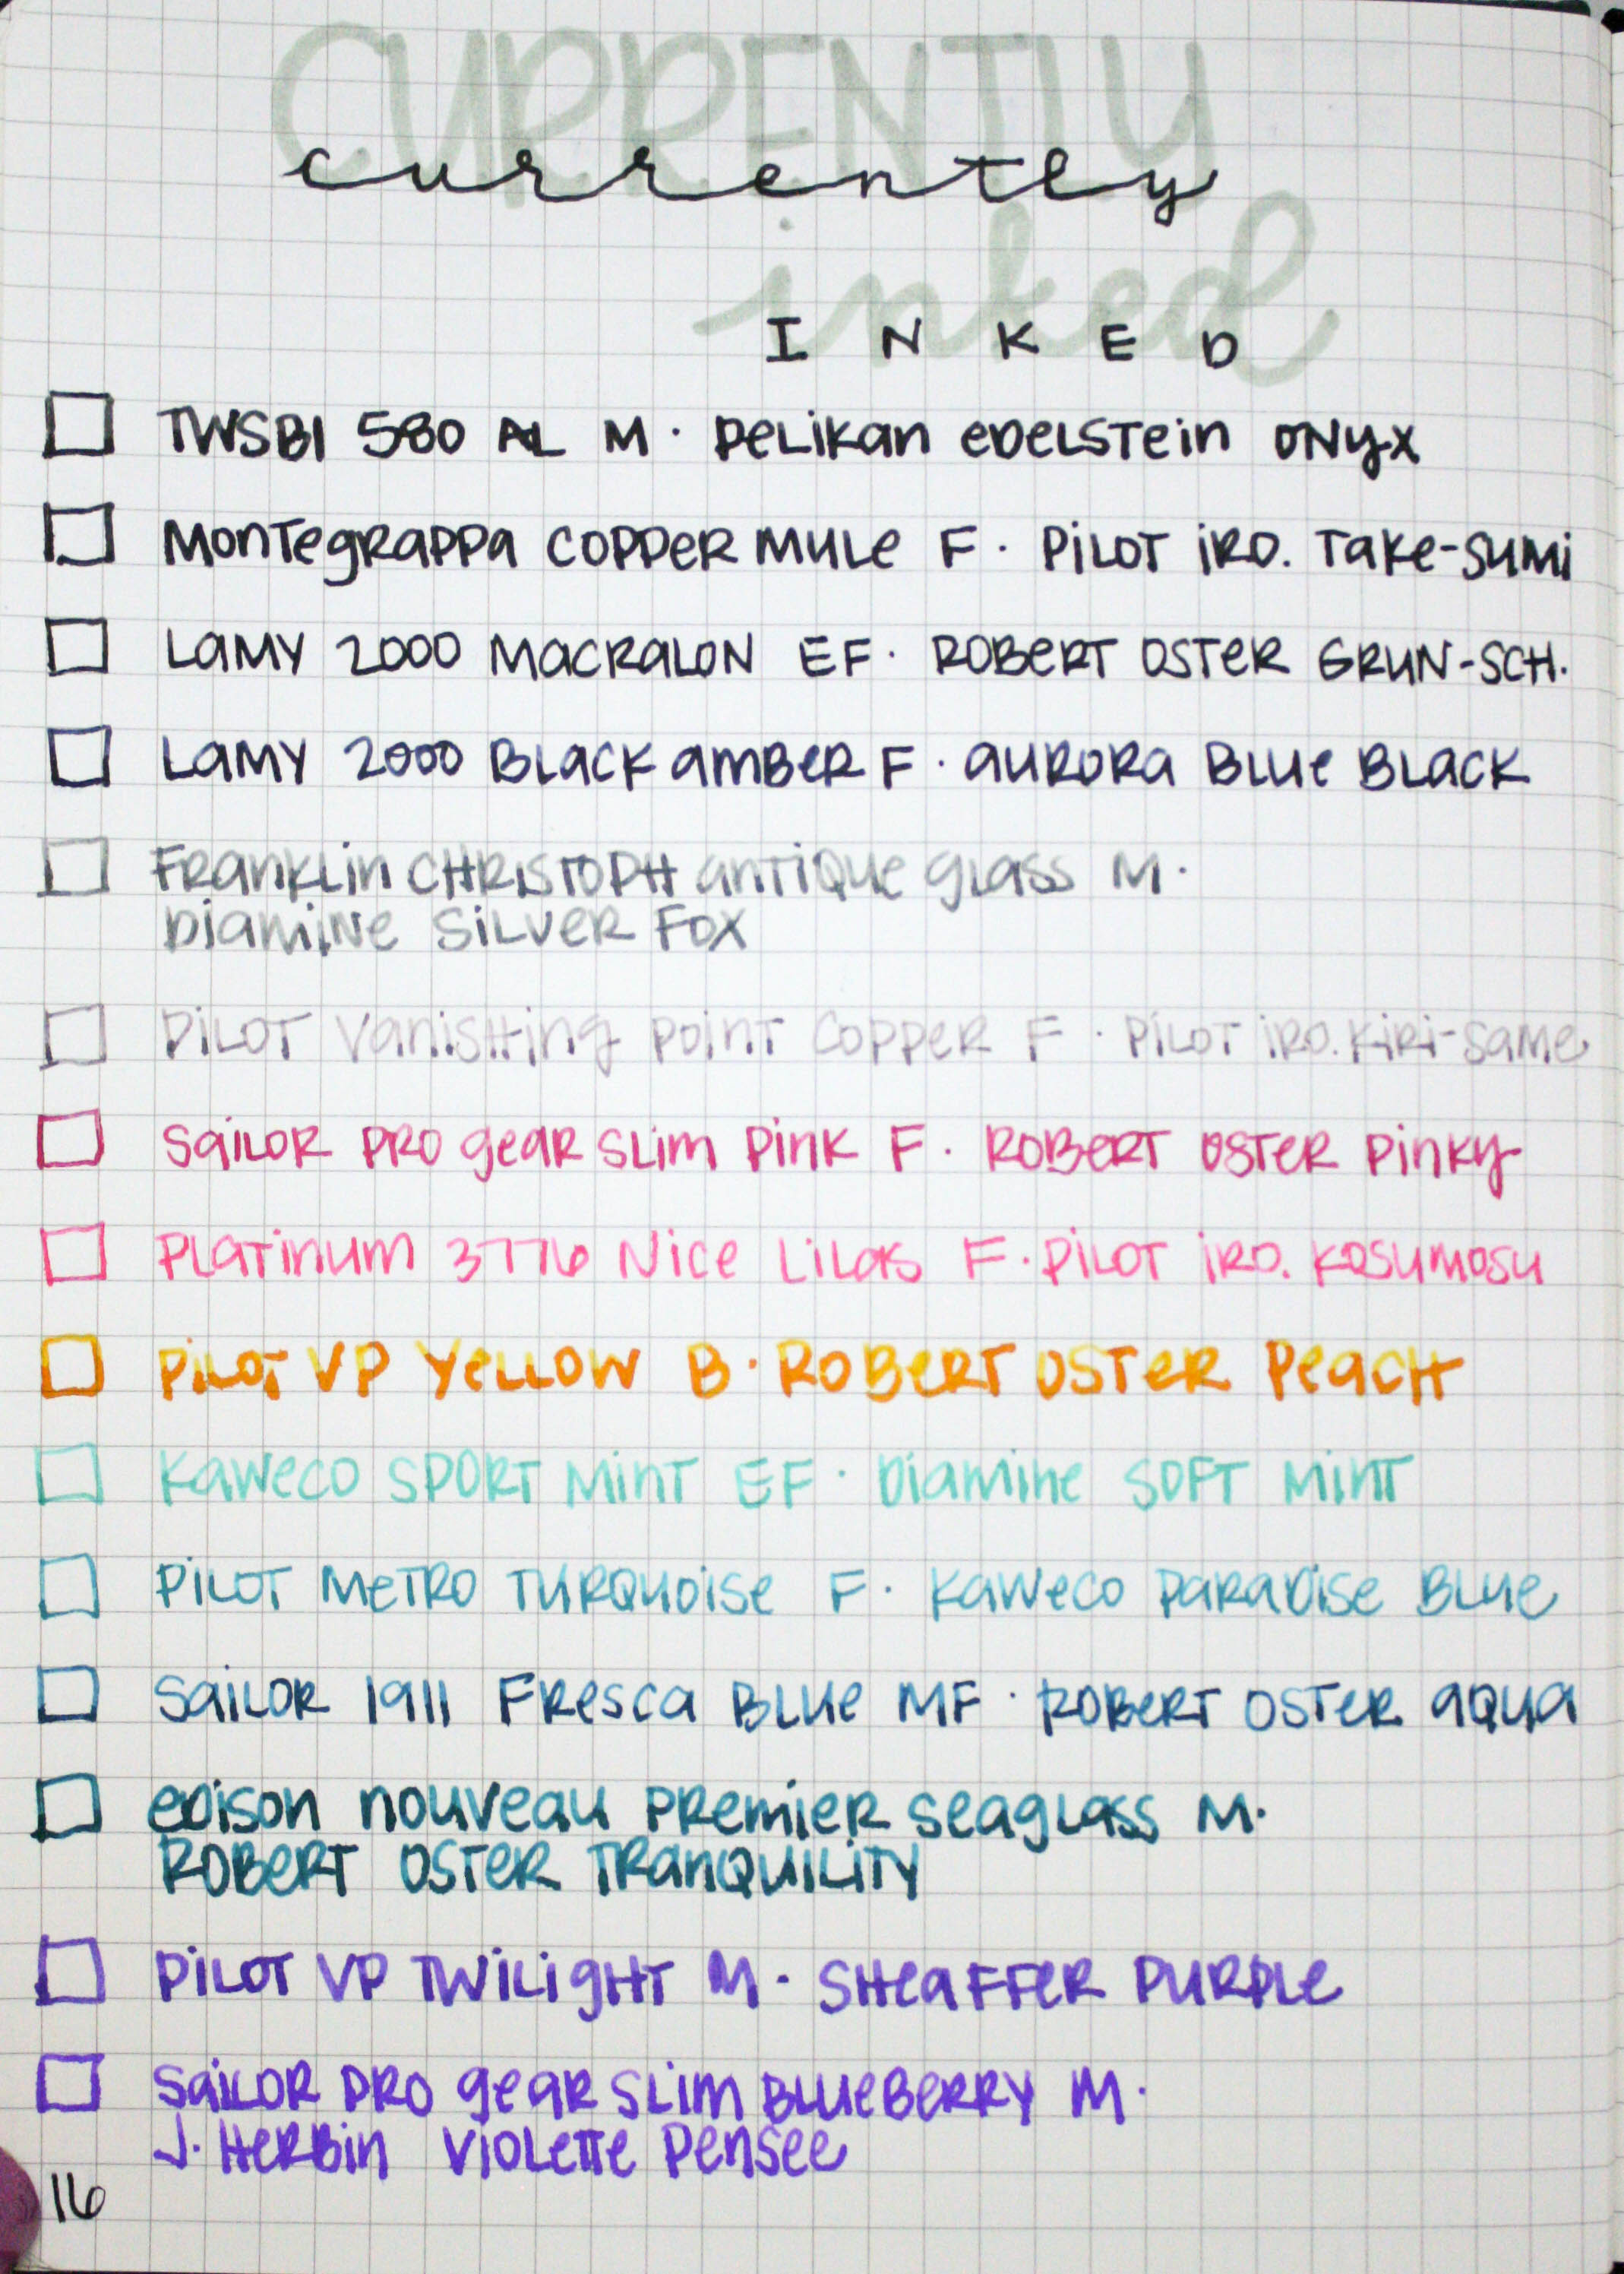 CURRENTLY
currently
inked
INKED
TWSBI 580 AL M · Pelikan Edelstein Onyx
Montegrappa Copper Mule F · Pilot Iro. Take-Sumi
Lamy 2000 Macralon EF · Robert Oster Grun-Sch.
Lamy 2000 Black Amber F · Aurora Blue Black
Franklin Christoph Antique Glass M ·
Diamine Silver Fox
Pilot Vanishing Point Copper F · Pilot Iro. Kiri-Same
Sailor Pro Gear Slim Pink F · Robert Oster Pinky
Platinum 3776 Nice Lilas F · Pilot Iro. Kosumosu
Pilot VP Yellow B · Robert Oster Peach
Kaweco Sport Mint EF · Diamine Soft Mint
Pilot Metro Turquoise F · Kaweco Paradise Blue
Sailor 1911 Fresca Blue MF · Robert Oster Aqua
Edison Nouveau Premier Seaglass M ·
Robert Oster Tranquility
Pilot VP Twilight M · Sheaffer Purple
Sailor Pro Gear Slim Blueberry M ·
J. Herbin Violette Pensee
16